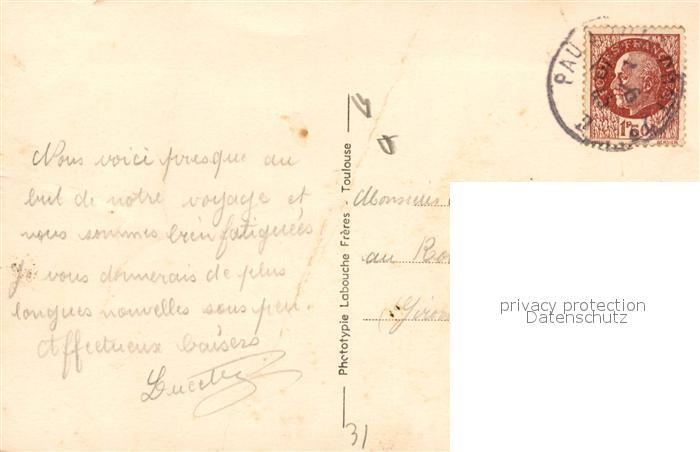 Nous voici presque au
but de notre voyage et
nous sommes bien fatiguées
Je vous donnerais de plus
longues nouvelles sous peu.
Affectueux baisers
Lucette
31
Phototypie Labouche Frères - Toulouse
PAU
POSTES FRANÇAISES
1F50
Monsieur
au
(Giron
privacy protection
Datenschutz